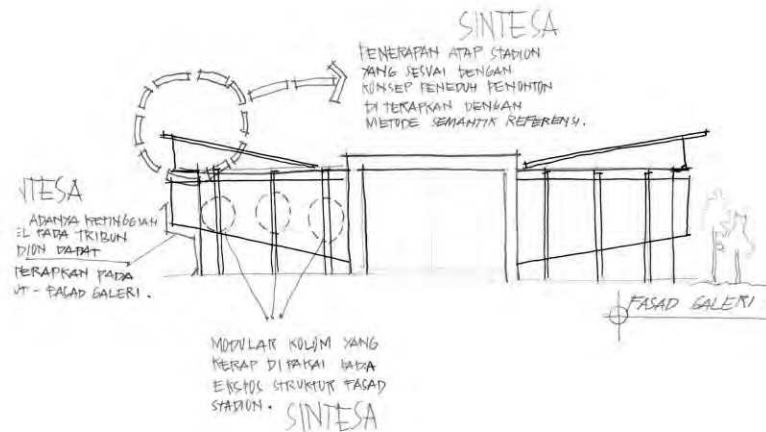 SINTESA
PENERAPAN ATAP STADION
YANG SESUAI DENGAN
KONSEP PENEDUH PENONTON
DI TERAPKAN DENGAN
METODE SEMANTIK REFERENSI.
NTESA
ADANYA KETINGGIAN
EL PADA TRIBUN
DION DAPAT
TERAPKAN PADA
UT - FASAD GALERI.
FASAD GALERI
MODULAR KOLOM YANG
KERAP DI PAKAI PADA
EKSPOS STRUKTUR FASAD
STADION.
SINTESA